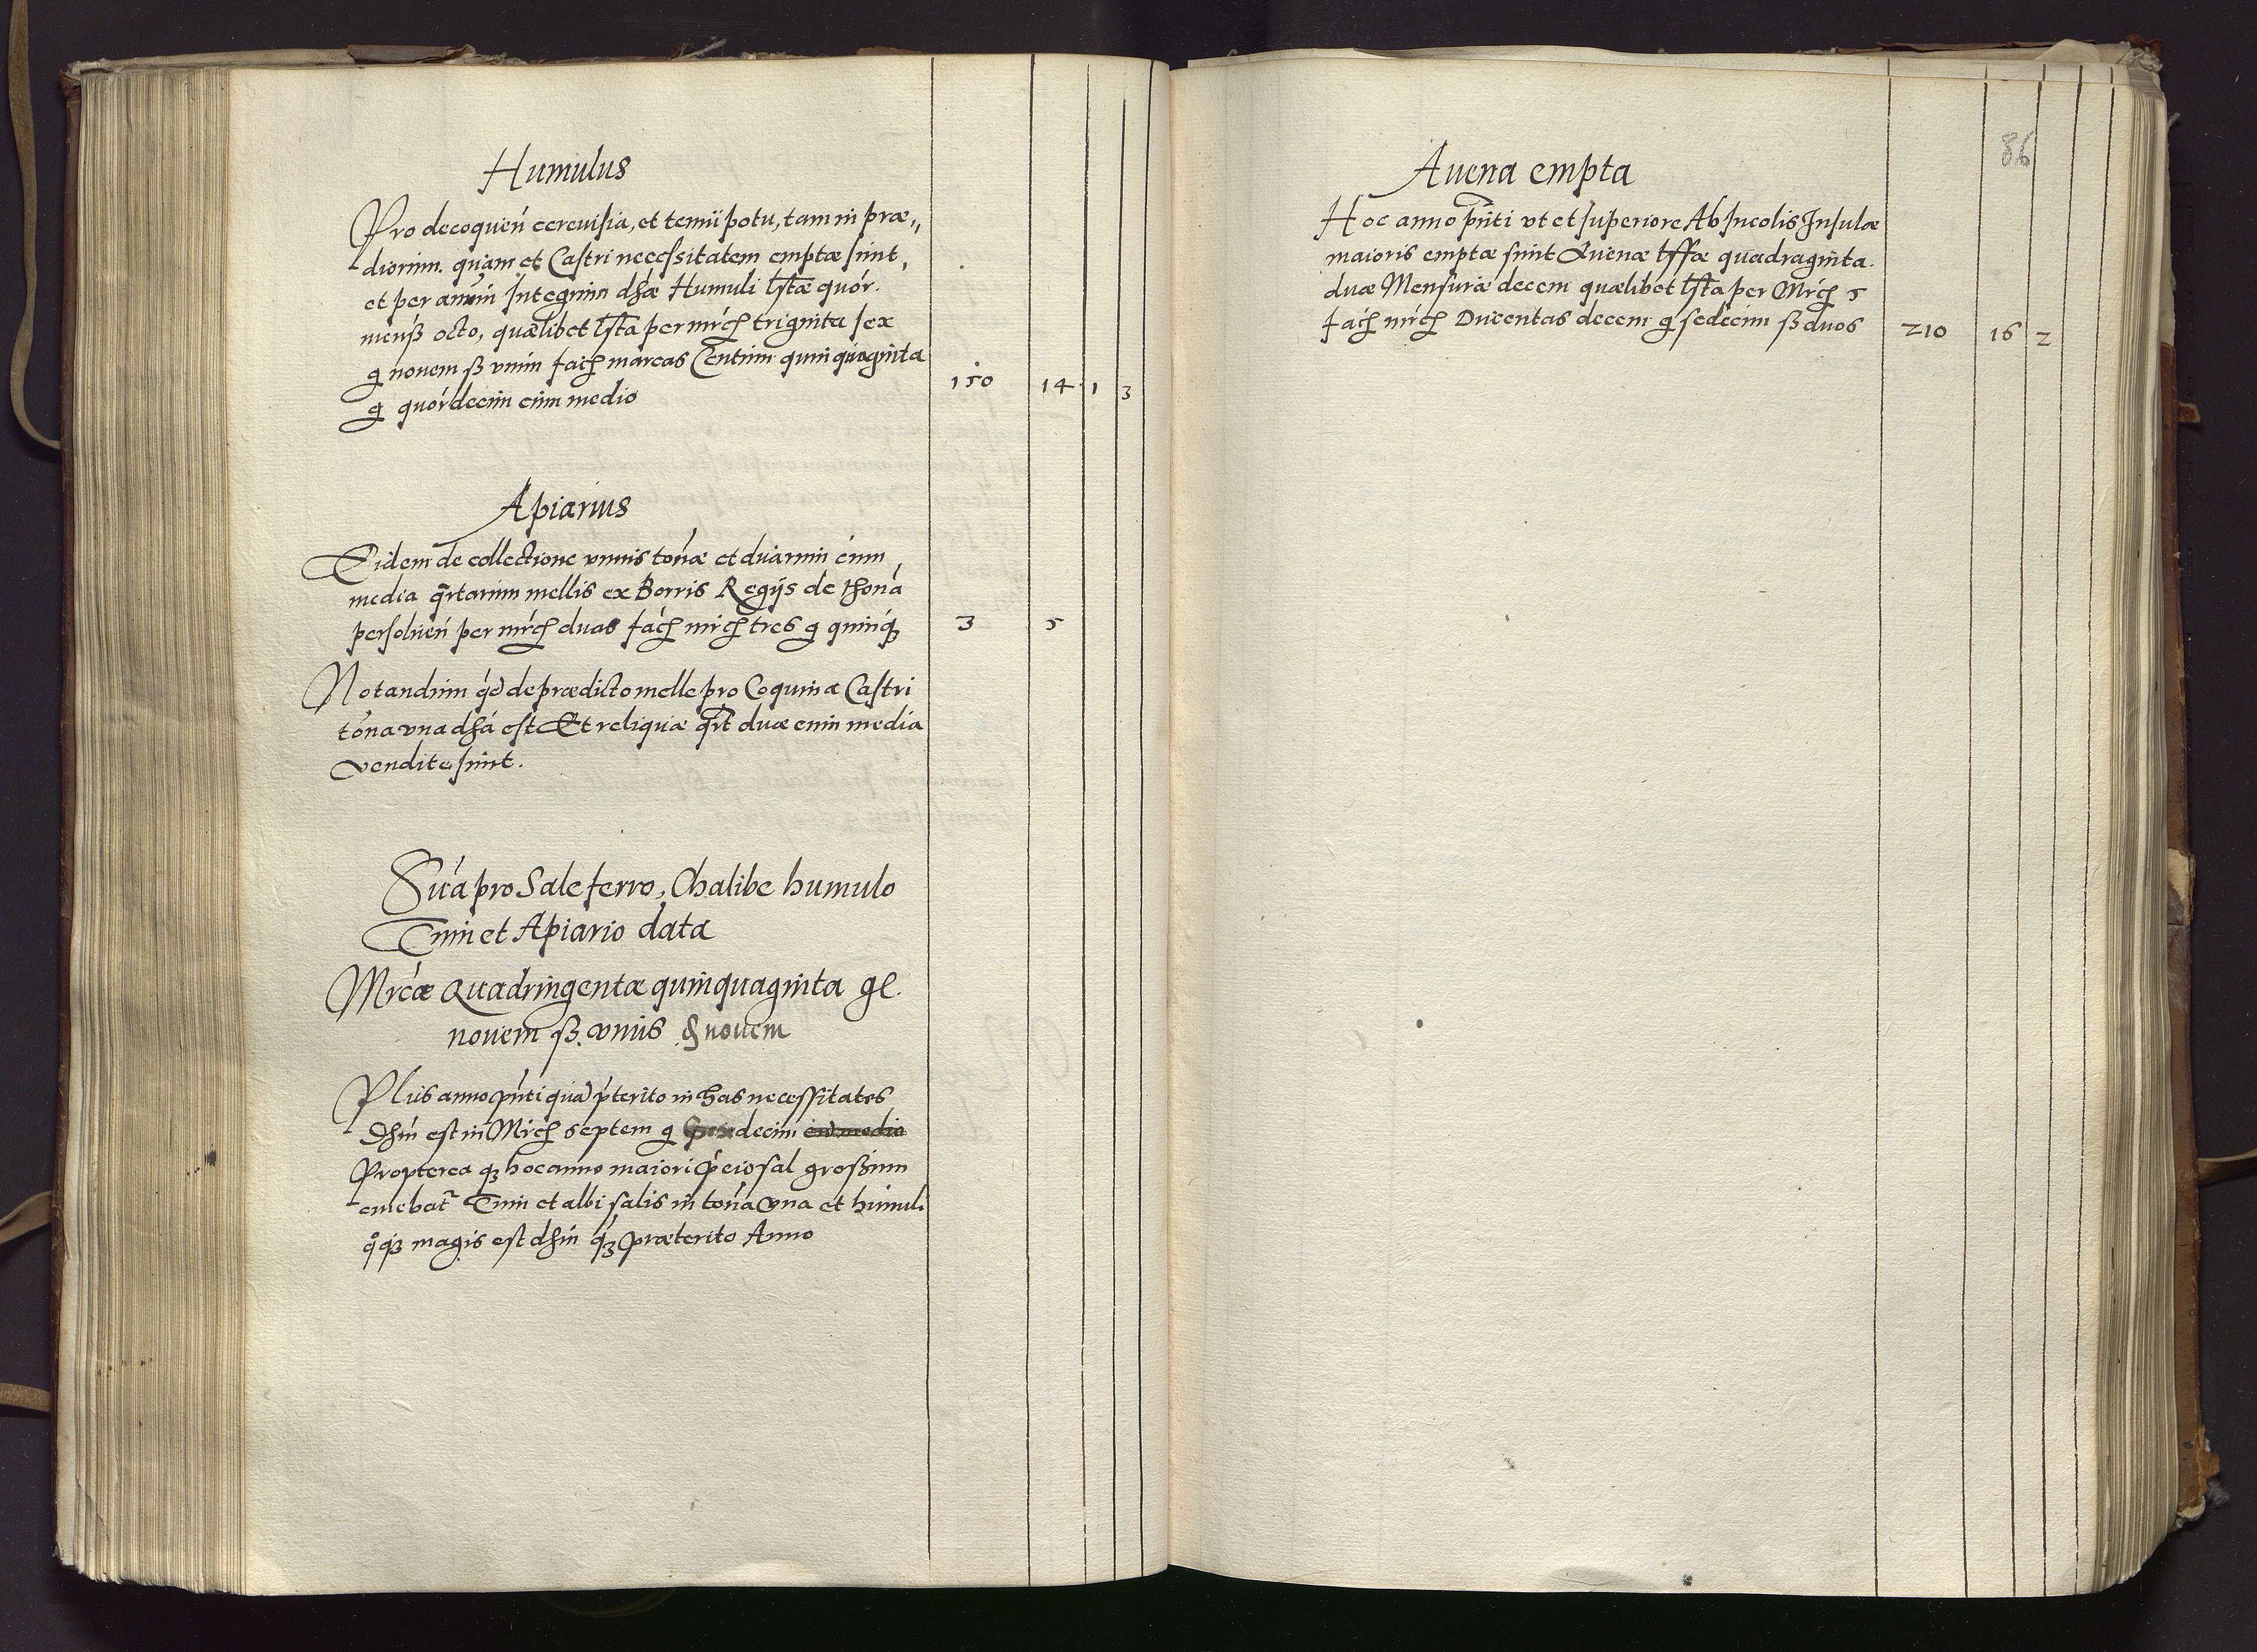 Humulus
Pro decoquen cerevisia, et tenui potu, tam in præ„
diorum. quam et Castri necessitatem emptæ sunt,
et per annum Integrum dhæ Humuli lstæ quor.
mensß octo, quælibet lsta per mrch triginta sex
g novem ß vnum fach marcas Centum quinquaginta
g quordecim cum medio 150 14 1 3
Apiarius
Eidem de collectione vnius tonæ et duarum cum,
media qrtarum mellis ex Borris Regijs de thona
persoluen per mrch duas fach mrch tres g quinqȝ 3 5
Notandum qd de prædicto melle pro Coquina Castri
tona vna dha est Et reliquæ qrt duæ cum media
vendite sunt.
Sua pro Sale ferro, Chalibe humulo
Tum et Apiario data
Mrcæ Quadringentæ quinquaginta gl.
novem ß. vnus & novem
Plus anno pnti qua pterito in has necessitates
Dhm est in Mrch septem g decim cu medio
Propterea qȝ hoc anno maiori pcio sal großum
emebat Tum et albi salis in tona vna et humuli
qoqȝ magis est dhm qȝ præterito Anno
86
Auena empta
Hoc anno pnti vt et superiore Ab Incolis Insulæ
maioris emptæ sunt Auenæ lstæ quadraginta.
duæ Mensuræ decem quælibet lsta per Mrch 5
fach mrch Ducentas decem g sedecim ß duos 210 16 2